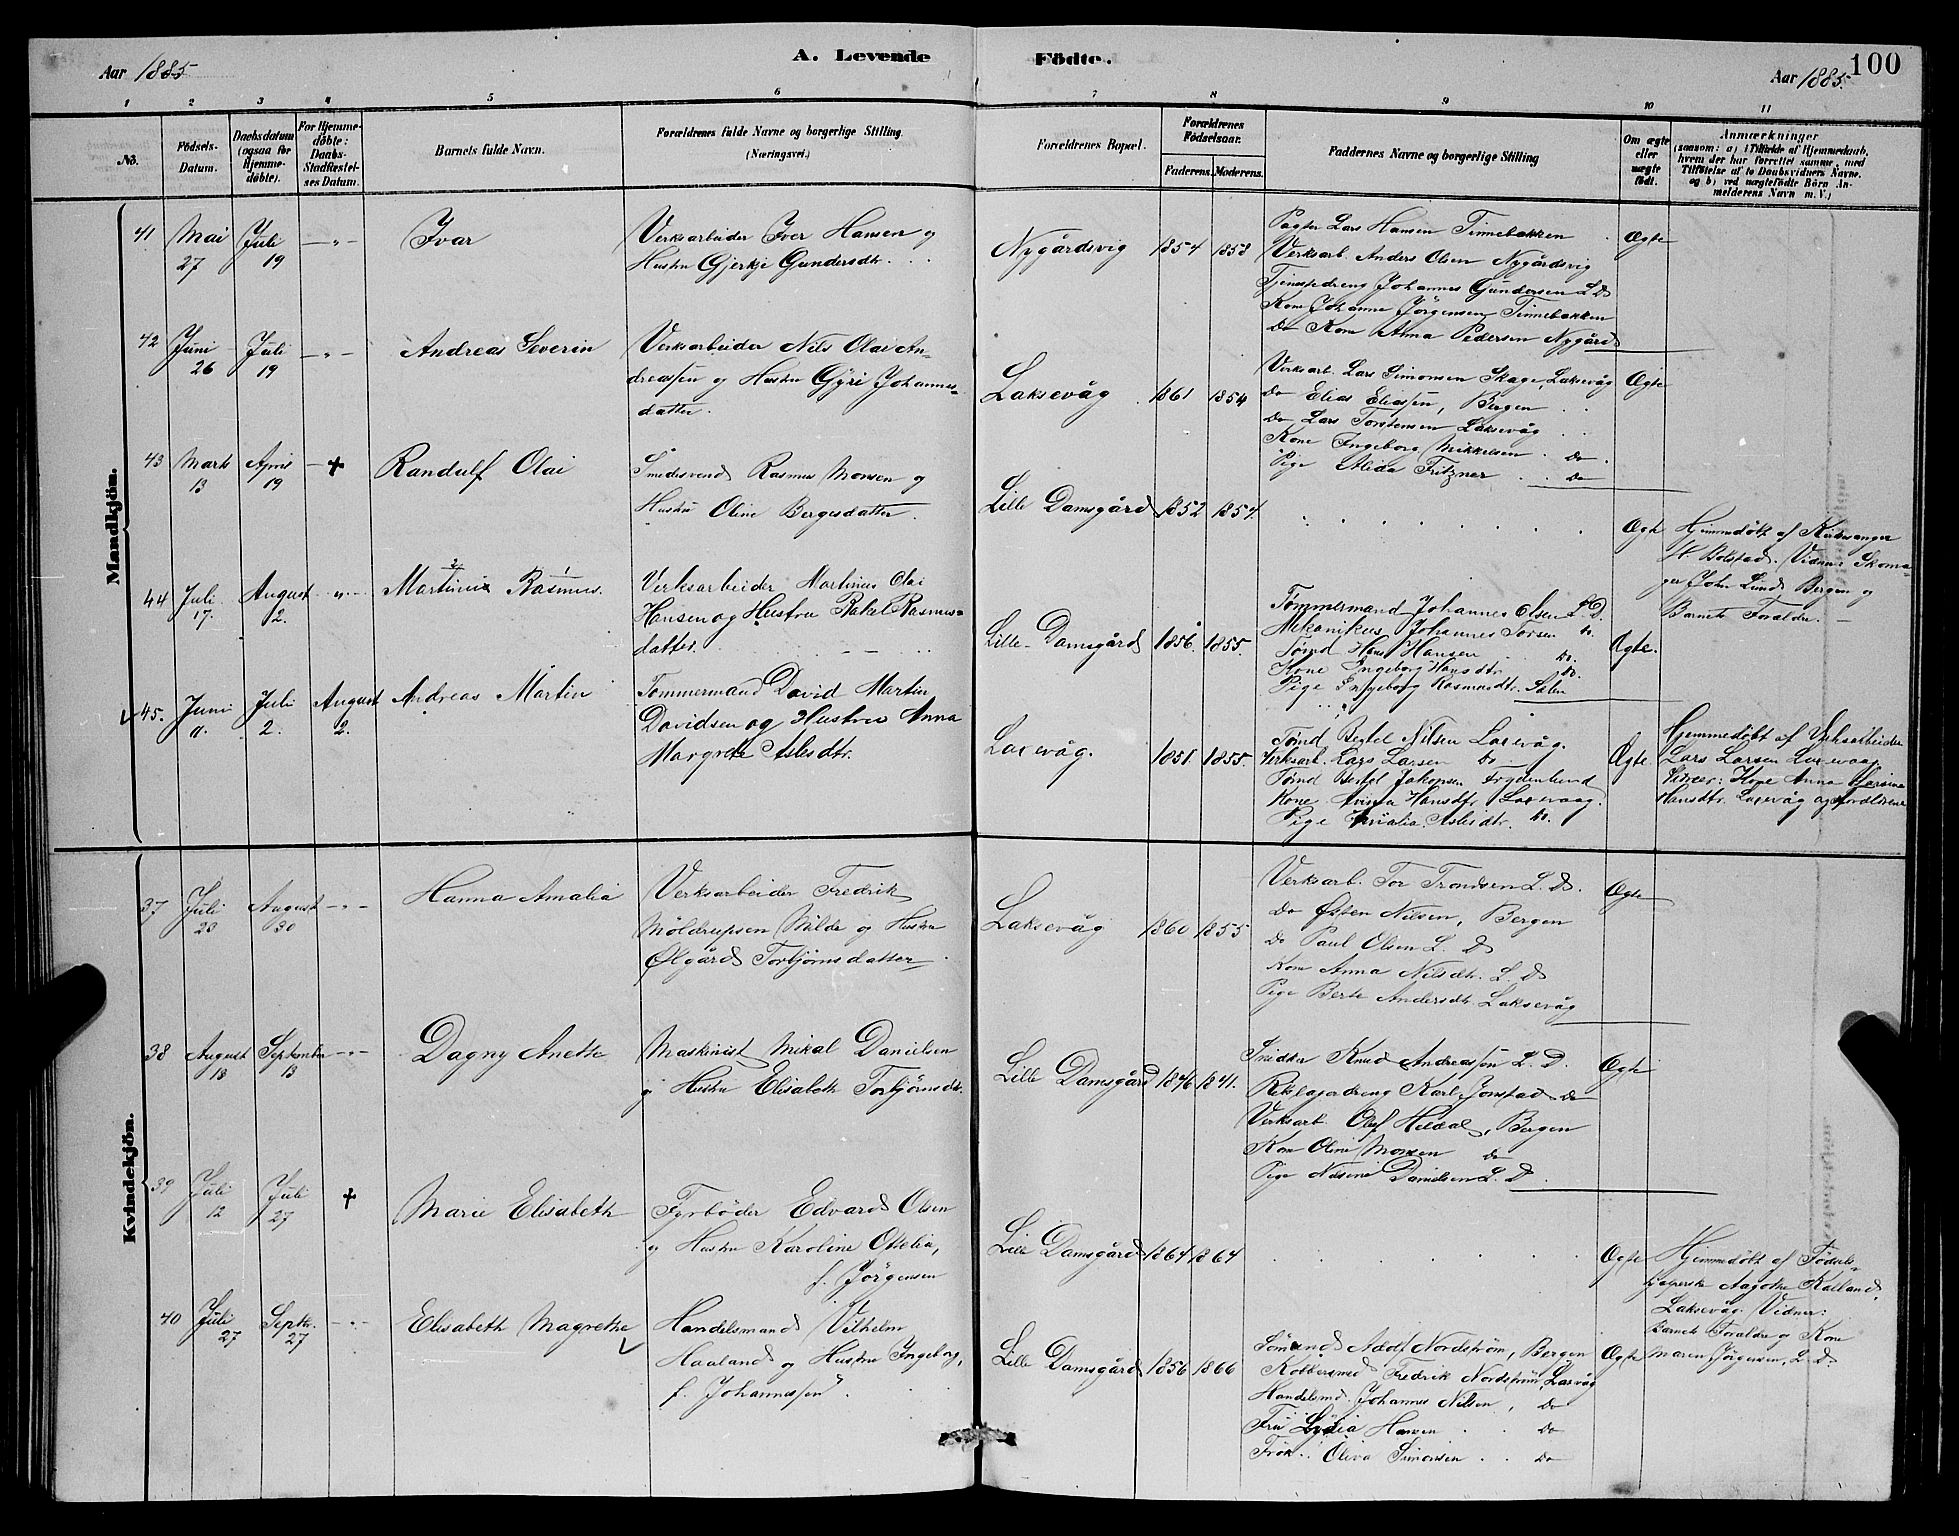 Aar 1885
A. Levende
Födte.
Aar 1885.
100
1 2 3 4 5 6 7 8 9 10 11
No.
Födsels-
Datum.
Daabsdatum
(ogsaa for
Hjemme-
döbte).
For Hjemme-
döbte:
Daabs-
Stadfæstel-
ses Datum.
Barnets fulde Navn.
Forældrenes fulde Navne og borgerlige Stilling.
(Næringsvei.)
Forældrenes Bopæl.
Forældrenes
Födselsaar.
Faderens. Moderens.
Faddernes Navne og borgerlige Stilling
Om ægte
eller
uægte
födt.
Anmærkninger
(saasom: a) i Tilfælde af Hjemmedaab,
hvem der har forrettet samme, med
Tilföielse af to Daabsvidners Navne.
og b) ved uægtefödte Börn An-
melderens Navn m. V.)
Mandkjön.
41
Mai
27
Juli
19
Ivar
Verksarbeider Iver Hansen og
Hustru Gjerki Gundersdtr.
Nygårdsvig
1854
1858
Pagter Lars Hansen Tinnebakken
Verksarb. Anders Olsen Nygårdsvig
Tjenestedreng Johannes Gundersen L D
Kone Johanne Jörgensen Tinnebakken
Do Kone Anna Pedersen Nygård
Ægte
42
Juni
26
Juli
19
Andreas Severin
Verksarbeider Nils Olai An-
dreassen og Hustru Gyri Johannes-
datter.
Laksevåg
1861
1854
Verksarb. Lars Simonsen Skage, Laksevåg
Do Elias Eliassen, Bergen
Do Lars Torstensen Laksevåg
Kone Ingeborg Mikkelsen Do
Pige Alida Fritzner Do
Ægte
43
Marts
13
April
19
+
Randulf Olai
Smedesvend Rasmus Monsen og
Hustru Oline Bergesdatter.
Lille Damsgård
1852
1854.
Ægte
Hjemmedøbt af Kirkesanger
H Bolstad. Vidner: Skoma-
ger John Lund Bergen og
Barnets Forældre.
44
Juli
17.
August
2.
Martinus Rasmus.
Verksarbeider Martinus Olai
Hansen og Hustru Rakel Rasmus-
datter.
Lille-Damsgård
1856.
1855.
Tømmermand Johannes Olsen L.D.
Mekanikus Johannes Torsen do.
Tømd Hans Hansen Do.
Kone Ingeborg Hansdtr. Do.
Pige Ingeborg Rasmusdtr.
Ægte.
45.
Juni
Juli
2.
August
2.
Andreas Martin
Tømmermand David Martin
Davidsen og Hustru Anna
Margrete Aslesdtr.
Laxevåg.
1851
1855.
Tømd Bertel Nilsen Laxevåg.
Verksarb. Lars Larsen Do
Tømd Bertel Jakopsen Frydenlund
Kone Hansdtr. Laxevaag.
Pige Amalia Aslesdtr. Do.
Ægte.
Hjemmedøbt af Verksarbeider
Lars Larsen Laxevaag
Vidner: Kone Anna
Hansdtr. Laxevåg og Forældrene
Kvindekjön.
37
Juli
23
August
30
Hanna Amalia
Verksarbeider Fredrik
Möldrupsen Milde og Hustru
Ølgård Torbjörnsdatter
Laksevåg
1860
1855
Verksarb. Tor Trondsen L. D.
Do Østen Nilsen, Bergen
Do Paul Olsen L. D
Kone Anna Nilsdtr. L. D
Pige Berte Andersdtr. Laksevåg
Ægte
38
August
13
September
13
Dagny Anette
Maskinist Mikal Danielsen
og Hustru Elisabeth Torbjörnsdtr.
Lille Damsgård
1846
1841.
Snidker Knud Andreassen L. D.
Karl Jonstad Do
Verksarb. Oluf Heldal, Bergen
Kone Oline Monsen Do
Pige Danielsen L. D.
Ægte
39
Juli
12
Juli
27
+
Marie Elisabeth
Fyrböder Edvard Olsen
og Hustru Karoline Ottelia,
f. Jörgensen
Lille Damsgård
1864
1864
Ægte
Hjemmedøbt af Fødsels-
hjælperske Aagothe Kaaland,
Laksevåg. Vidner:
Barnets Forældre og Kone
Maren Jörgensen, L. D.
40
Juli
27
Septbr.
27
Elisabeth Magrethe
Handelsmand Vilhelm
Haaland og Hustru Ingeborg,
f. Johannessen.
Lille Damsgård
1856
1866
Sömand Adolf Nordström, Bergen
Kobbersmed Fredrik Nordström, Laxvåg
Handelsmd. Johannes Nilsen, Do
Fru Lydia Hansen Do
Frök. Oliva Simonsen Do
Ægte